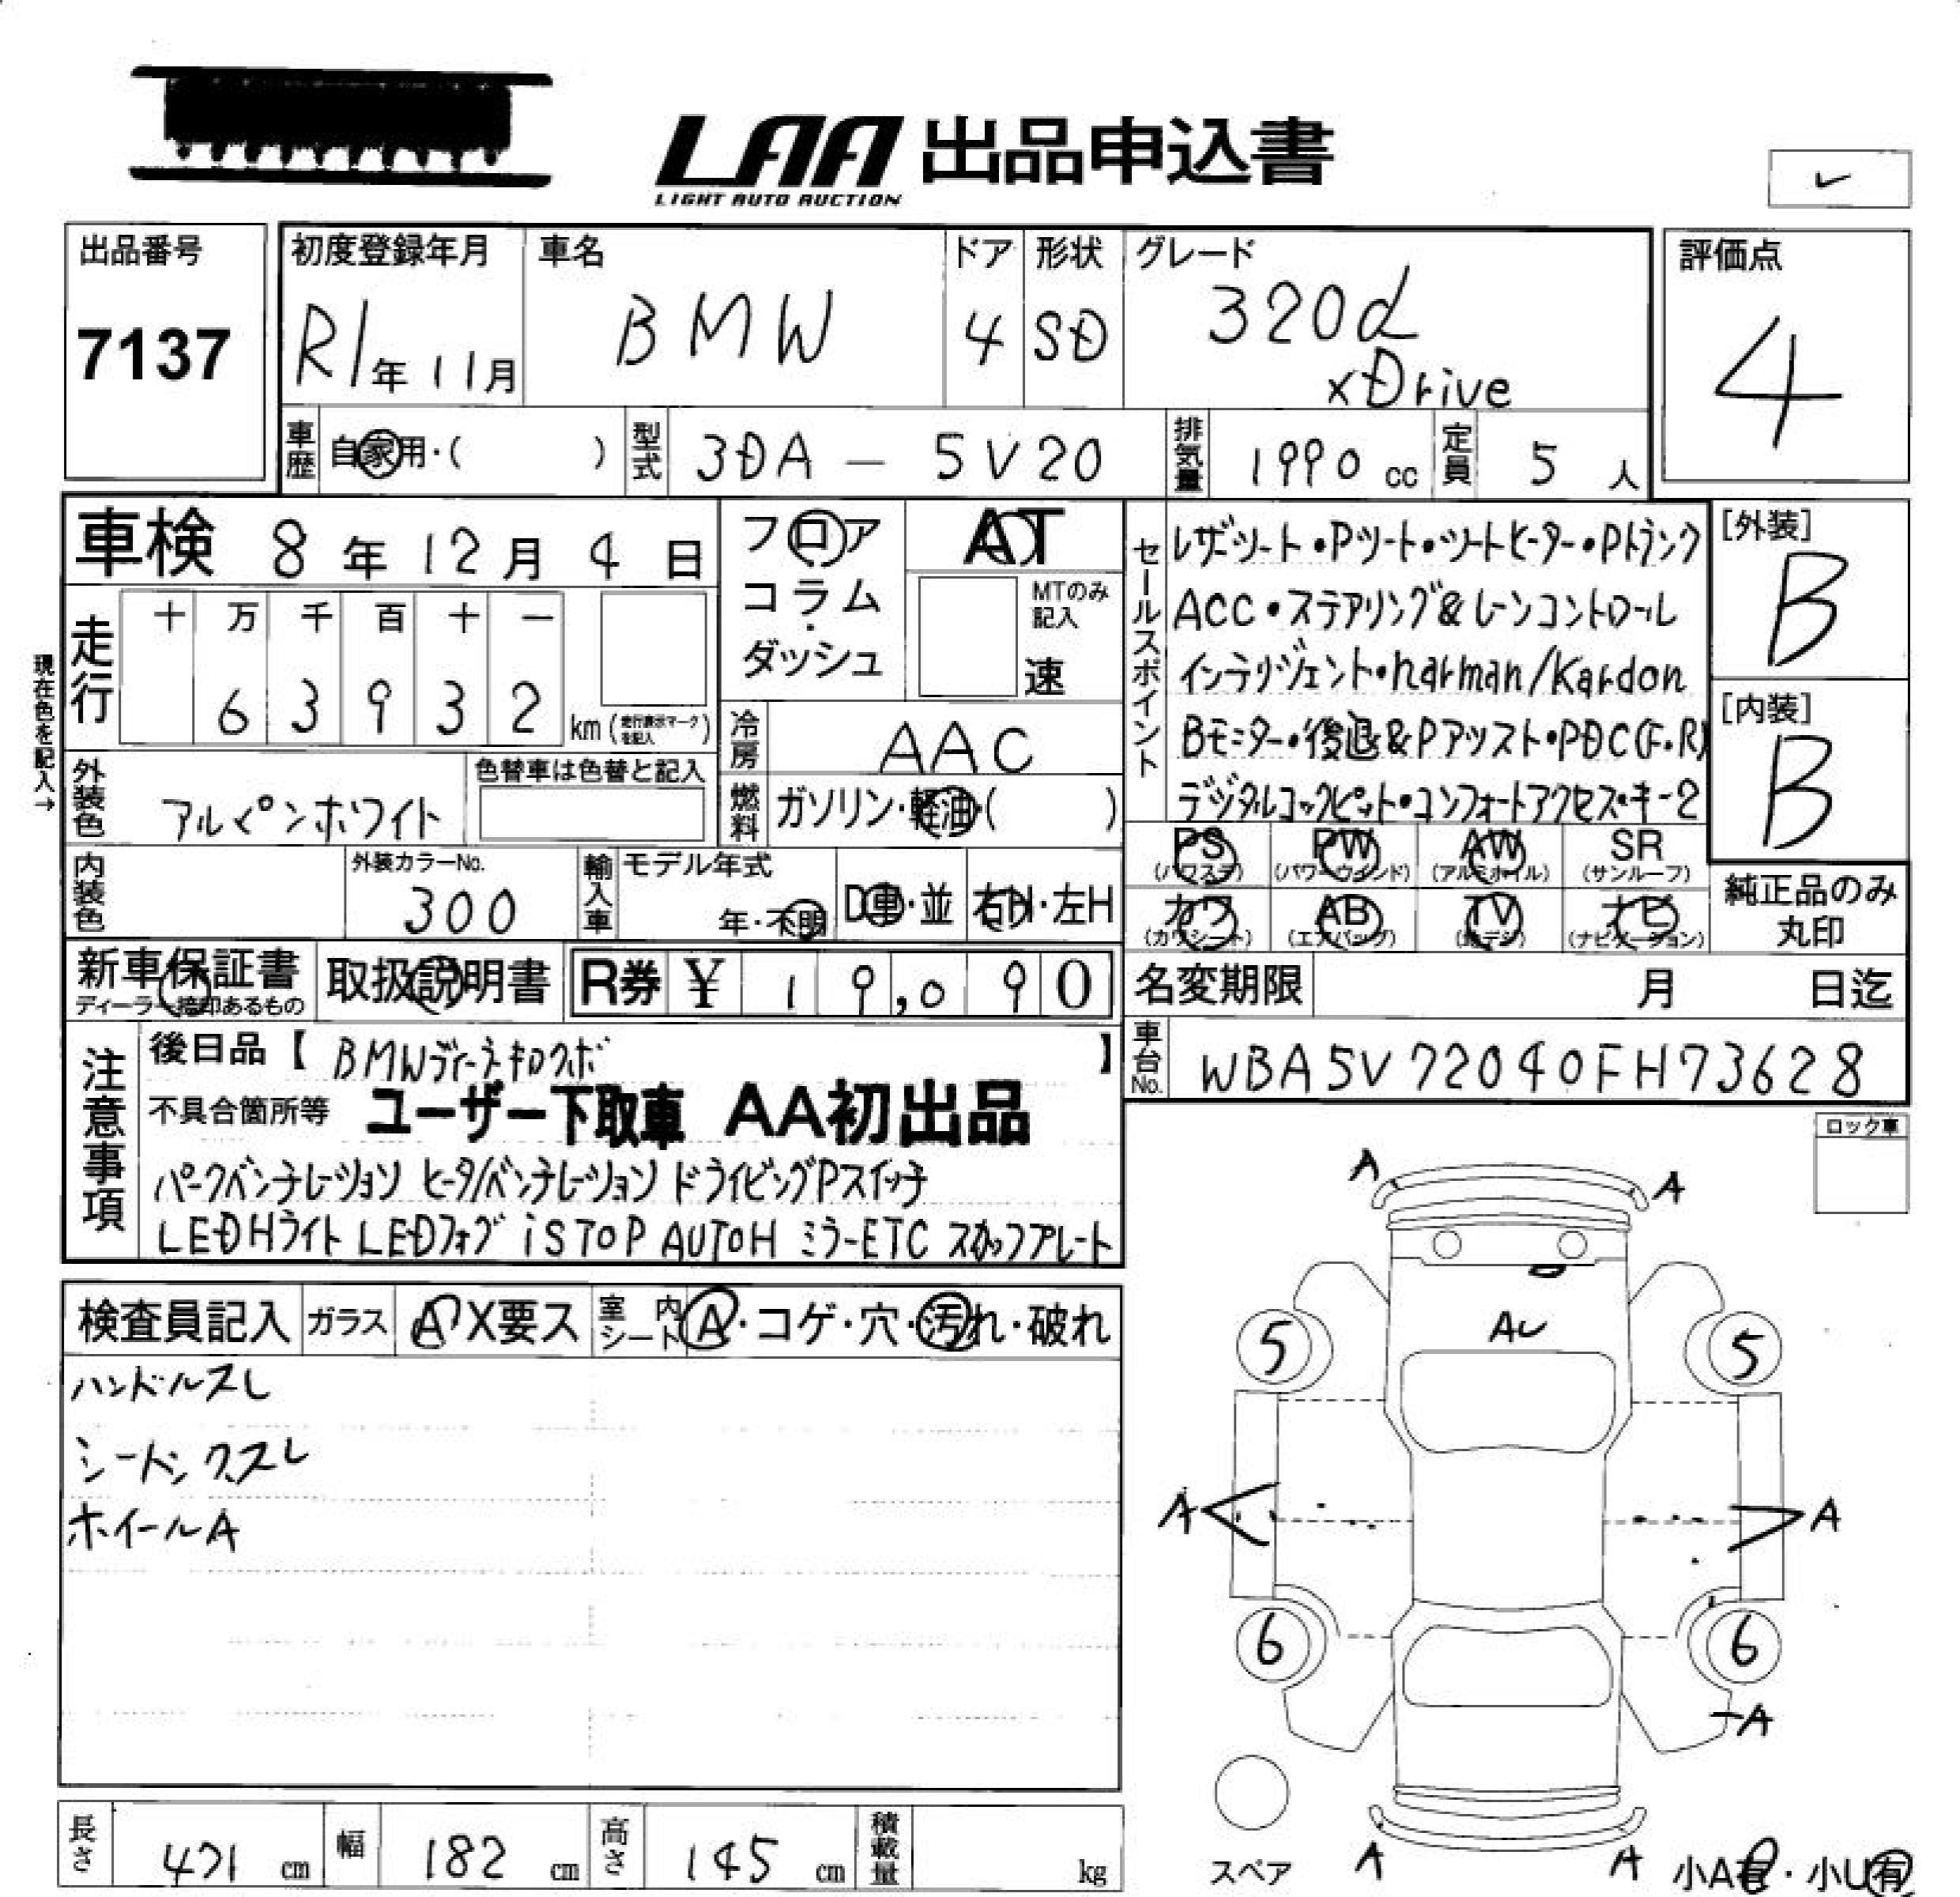 LAA 出品申込書
LIGHT AUTO AUCTION
出品番号
7137
初度登録年月
R1年11月
車名
BMW
ドア
4
形状
SD
グレード
320d
xDrive
評価点
4
車歴
自家用・( )
型式
3DA － 5V20
排気量
1990 cc
定員
5 人
車検 8年12月4日
フロア
コラム
・
ダッシュ
AT
MTのみ
記入
速
走行
十 万 千 百 十 一
6 3 9 3 2
km (走行表示マークを記入)
現在色を記入→
外装色
アルペンホワイト
色替車は色替と記入
冷房
AAC
燃料
ガソリン・軽油・( )
内装色
外装カラーNo.
300
輸入車
モデル年式
年・不明
D車・並
右H・左H
セールスポイント
レザーシート・Pシート・シートヒーター・Pトランク
ACC・ステアリング&レーンコントロール
インテリジェント・harman/kardon
Bモニター・後退&Pアシスト・PDC(F.R)
デジタルコックピット・コンフォートアクセス・キー2
[外装]
B
[内装]
B
PS
(パワステ)
PW
(パワーウィンド)
AW
(アルミホイル)
SR
(サンルーフ)
カワ
(カワシート)
AB
(エアバッグ)
TV
(地デジ)
ナビ
(ナビゲーション)
純正品のみ
丸印
新車保証書
ディーラー捺印あるもの
取扱説明書
R券 ¥ 19,090
名変期限 月 日迄
車台No.
WBA5V72040FH73628
注意事項
後日品【 】
不具合箇所等
ユーザー下取車 AA初出品
パークベンチレーション ヒータ/ベンチレーション ドライビングPスイッチ
LEDHライト LEDフォグ iSTOP AUTOH ミラーETC スカッフプレート
ロック車
検査員記入
ガラス
A X要ス
室内
シート
A・コゲ・穴・汚れ・破れ
ハンドルスレ
ホイールA
A
A
AU
5
5
A
A
6
6
A
スペア
A
A
小A有・小U有
長さ
471 cm
幅
182 cm
高さ
145 cm
積載量
kg